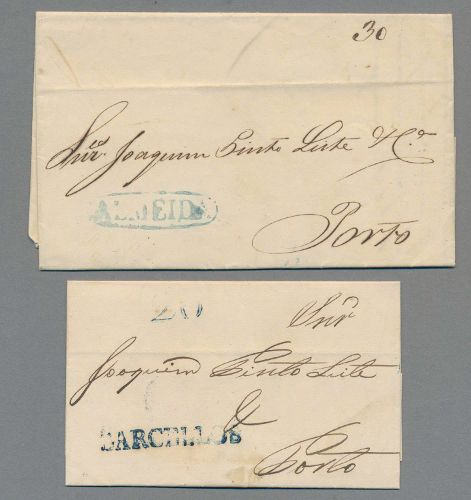 30
Snres. Joaquim Pinto Leite & Ca.
ALMEIDA
Porto
20
Snr
Joaquim Pinto Leite
&
BARCELLOS
Porto